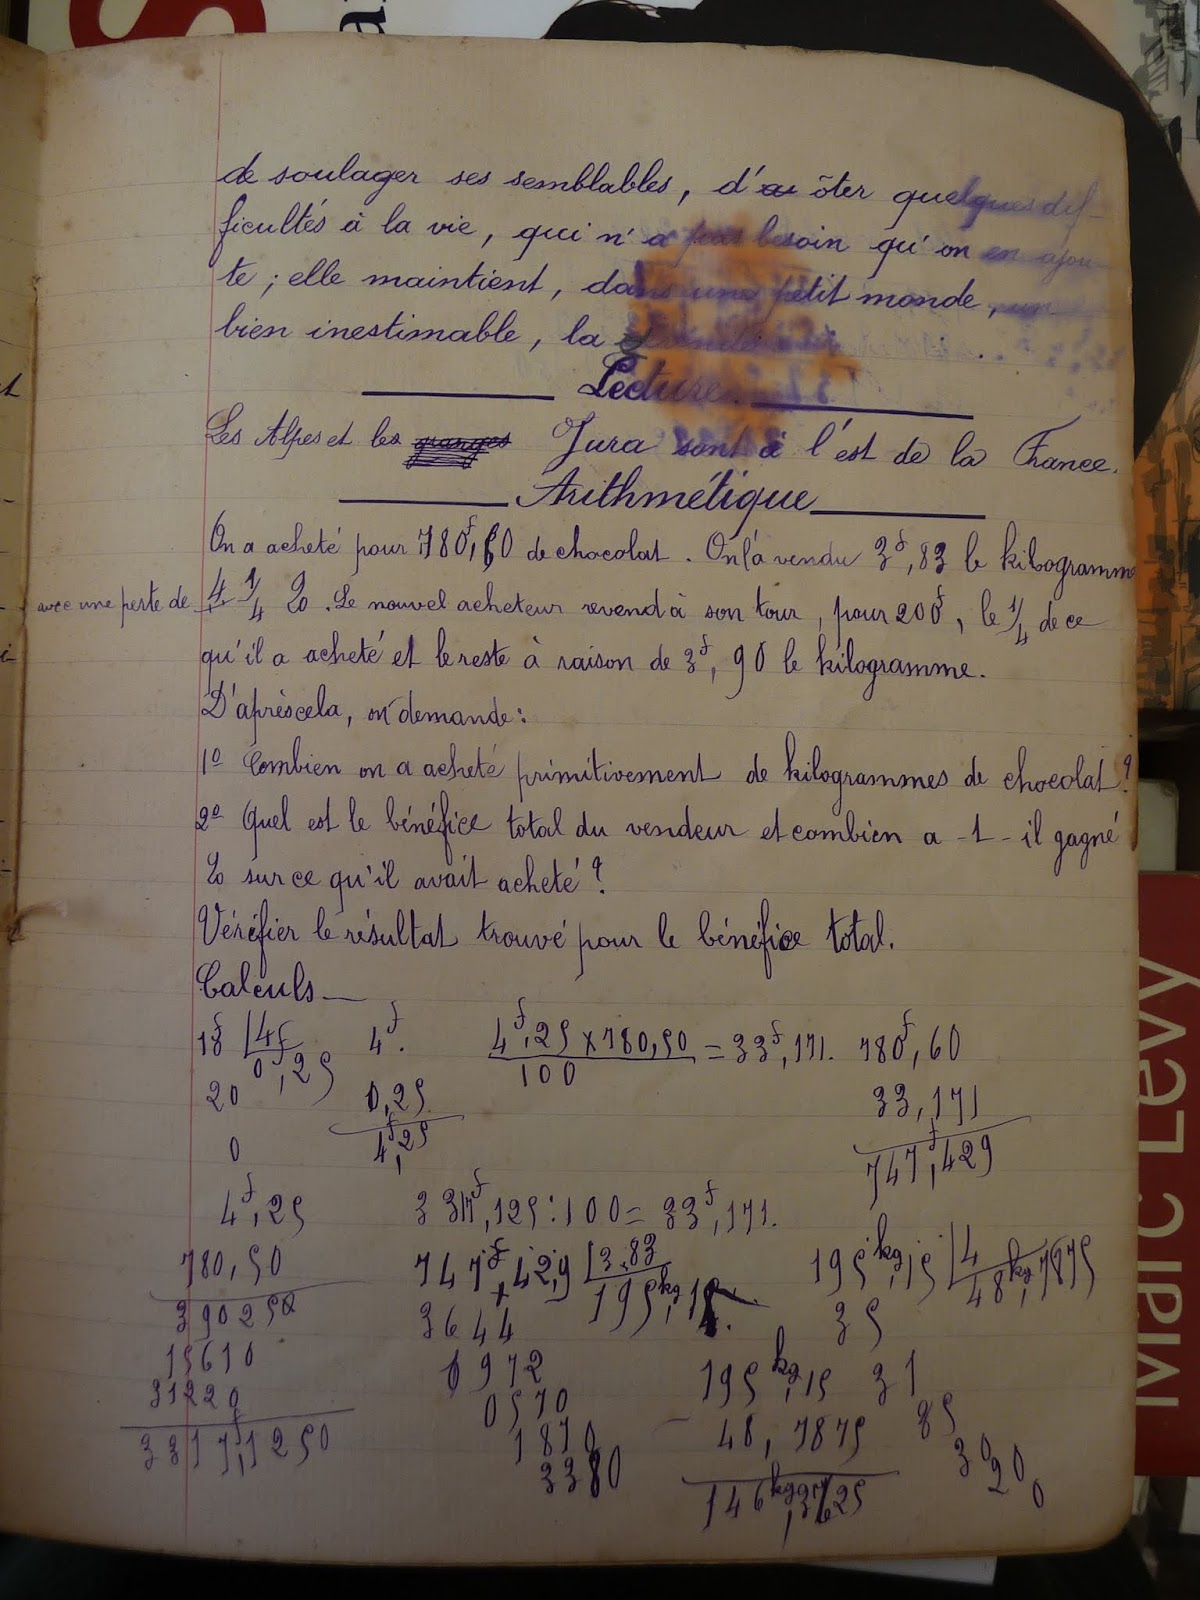 de soulager ses semblables, d'au ôter quelques dif-
ficultés à la vie, qui n'a pas besoin qu'on en ajou-
te; elle maintient, dans un petit monde, un
bien inestimable, la
Lecture
Les Alpes et les granges Jura sont à l'est de la France.
Arithmétique
On a acheté pour 780f,60 de chocolat. On l'a vendu 3f,83 le kilogramme
avec une perte de 4 1/4 %. Le nouvel acheteur revend à son tour, pour 200f, le 1/4 de ce
qu'il a acheté et le reste à raison de 3f,90 le kilogramme.
D'après cela, on demande:
1º Combien on a acheté primitivement de kilogrammes de chocolat?
2º Quel est le bénéfice total du vendeur et combien a-t-il gagné
% sur ce qu'il avait acheté?
Vérifier le résultat trouvé pour le bénéfice total.
Calculs
1f 4f 4f. 4f,25 x 780,50 / 100 = 33f,171. 780f,60
0f,25
20 0,25 33,171
0 4f,25 747f,429
4f,25 3317f,125 : 100 = 33f,171.
780,50 747f,429 3,83 195kg,15 4
390250 195kg,15 48kg,7875
3644 35
15610 0972 195kg,15 31
31220 0570 35
3317f,1250 1870 48,7875 30
3380 146kg,3625 20
0
Marc Levy